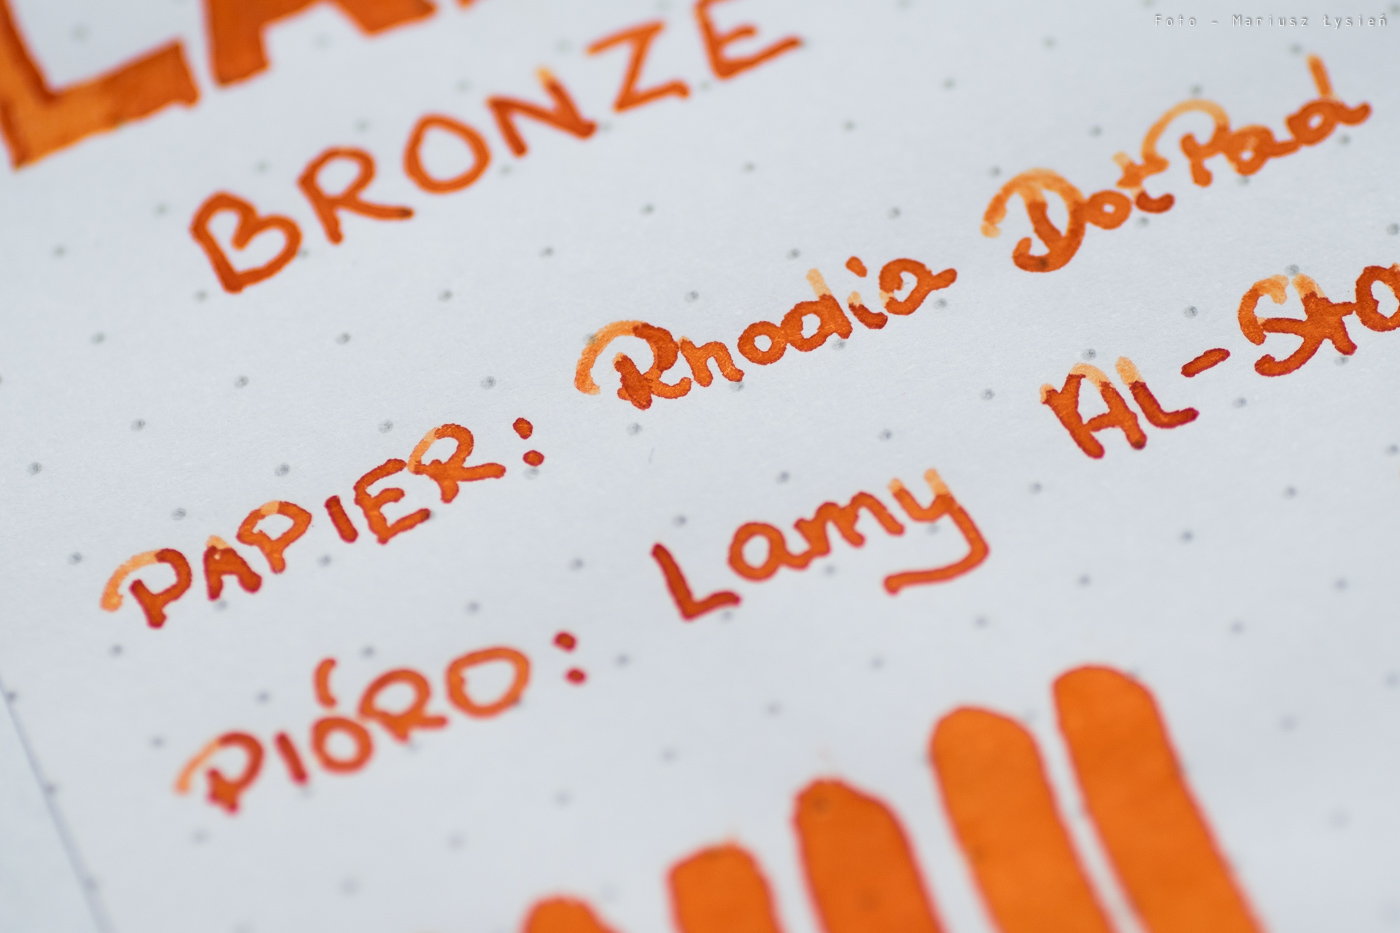 Foto - Mariusz Łysień
BRONZE
PAPIER: Rhodia DotPad
PIÓRO: Lamy AL-Sta